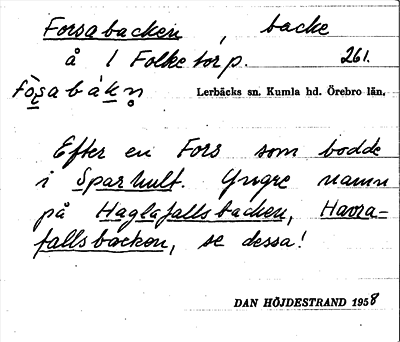 Forsabacken, backe
å 1 Folketorp. 261.
fò̀sabàkn̥ Lerbäcks sn. Kumla hd. Örebro län.
Efter en Fors som bodde
i Sparhult. Yngre namn
på Haglafallsbacken, Havra-
fallsbacken, se dessa!
DAN HÖJDESTRAND 1958